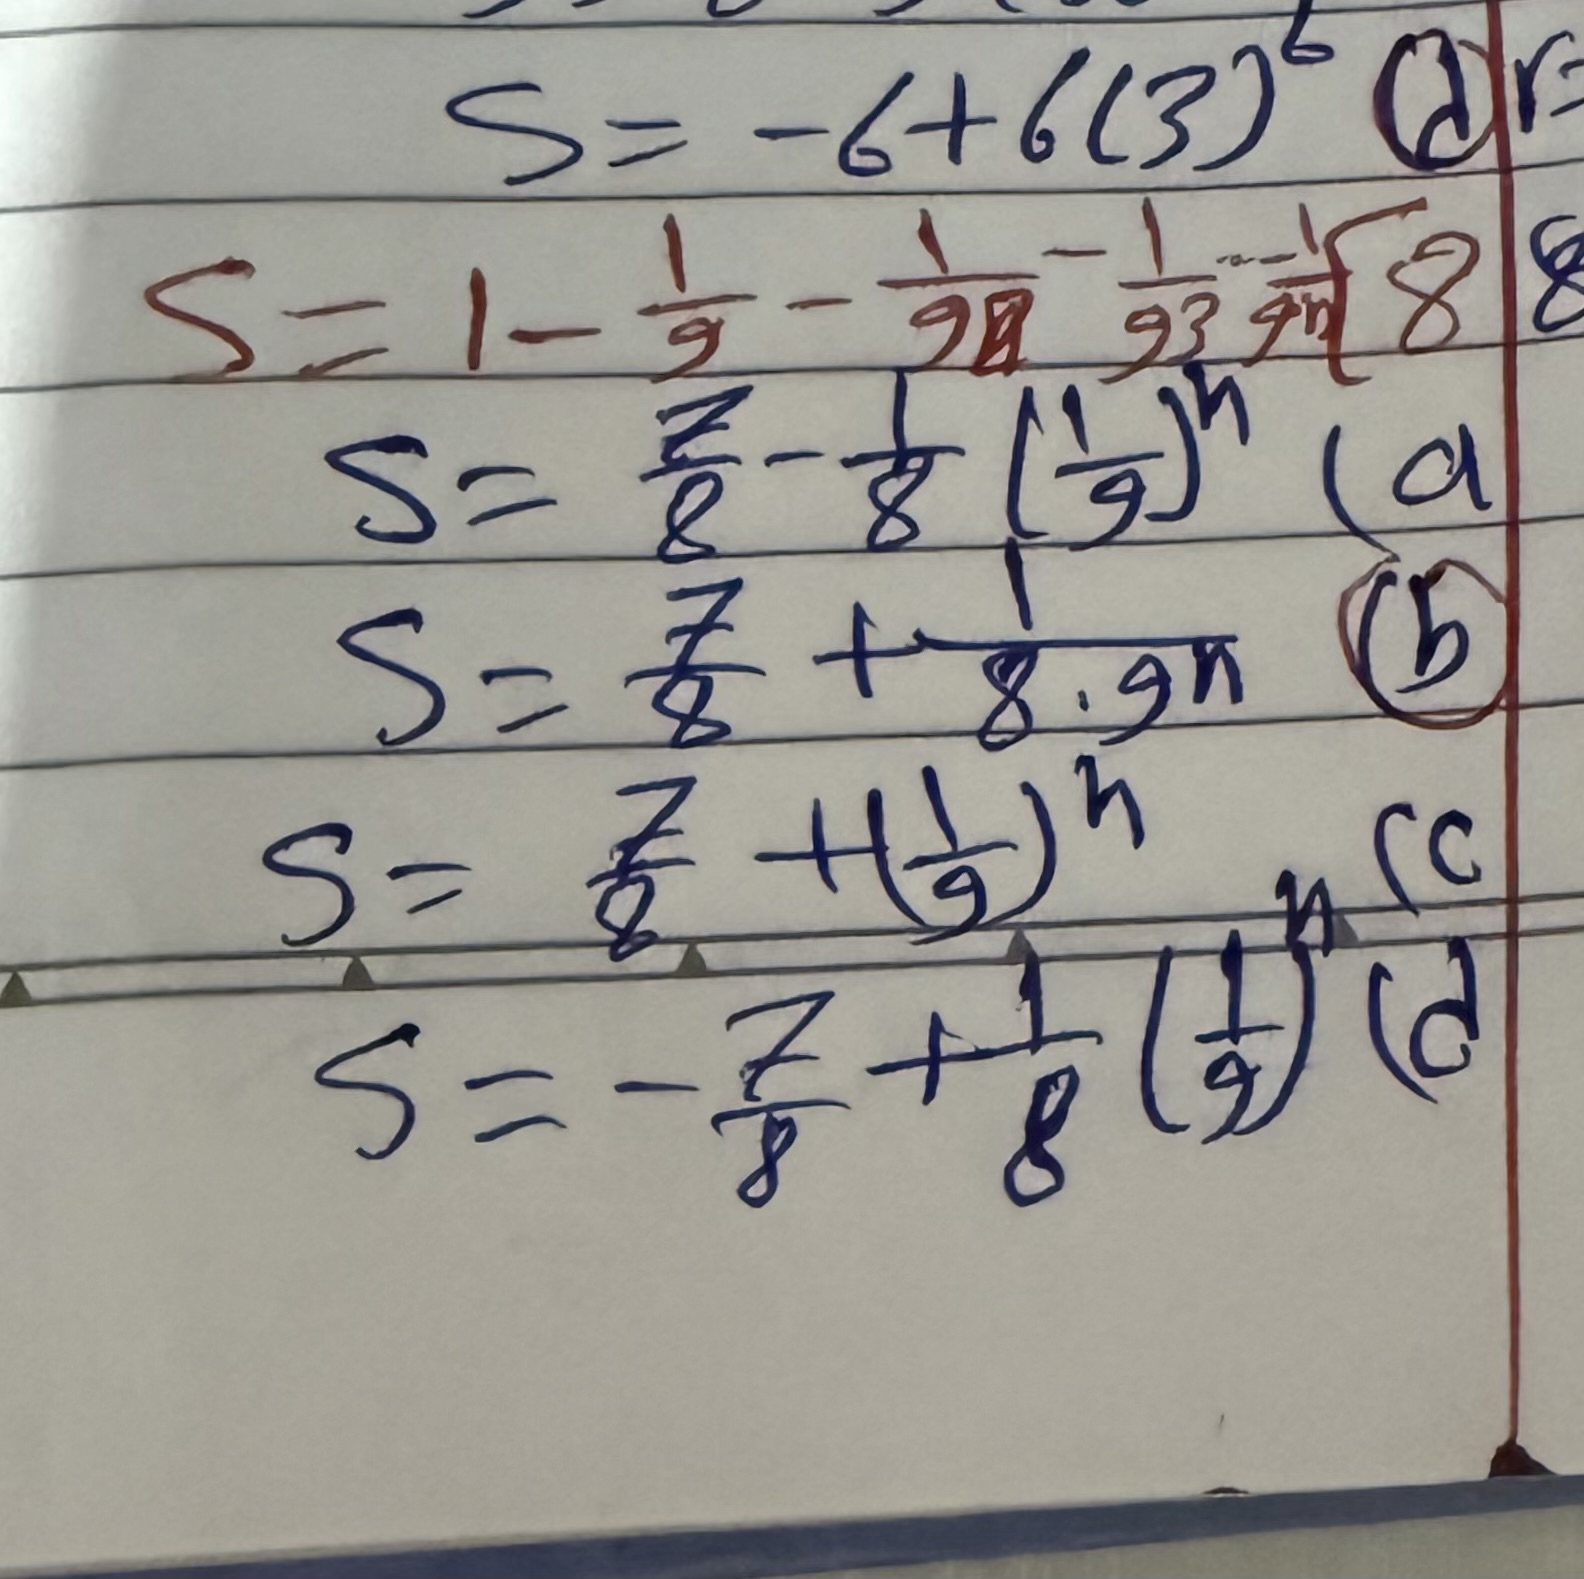 S = -6 + 6(3)^6 (d r=
S = 1 - 1/9 - 1/9² - 1/9³ ... - 1/9ⁿ 8 8
S = 7/8 - 1/8 (1/9)ⁿ (a
S = 7/8 + 1/(8·9ⁿ) (b
S = 7/8 + (1/9)ⁿ (c
S = -7/8 + 1/8 (1/9)ⁿ (d